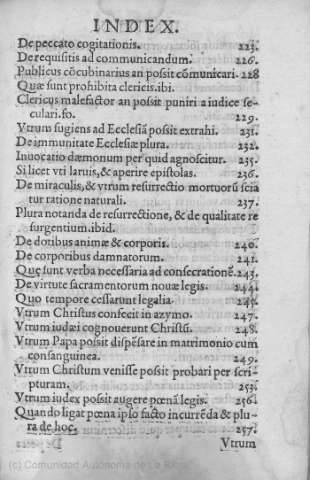 INDEX.
De peccato cogitationis. 223.
De requisitis ad communicandum. 226.
Publicus cōcubinarius an possit cōmunicari. 228
Quæ sunt prohibita clericis. ibi.
Clericus malefactor an possit puniri a iudice se
culari. fo. 229.
Vtrum fugiens ad Ecclesiā possit extrahi. 231.
De immunitate Ecclesiæ plura. 232.
Inuocatio dæmonum per quid agnoscitur. 235.
Si licet vti laruis, & aperire epistolas. 236.
De miraculis, & vtrum resurrectio mortuorū scia
tur ratione naturali. 237.
Plura notanda de resurrectione, & de qualitate re
surgentium. ibid.
De dotibus animæ & corporis. 240.
De corporibus damnatorum. 241.
Quę sunt verba necessaria ad consecrationē. 243.
De virtute sacramentorum nouæ legis. 244.
Quo tempore cessarunt legalia. 245.
Vtrum Christus confecit in azymo. 247.
Vtrum iudæi cognouerunt Christū. 248.
Vtrum Papa possit dispēsare in matrimonio cum
consanguinea. 249.
Vtrum Christum venisse possit probari per scri-
pturam. 253.
Vtrum iudex possit augere pœnā legis. 256.
Quando ligat pœna ipso facto incurrēda & plu-
ra de hoc. 257.
Vtrum
(c) Comunidad Autónoma de La Rioja